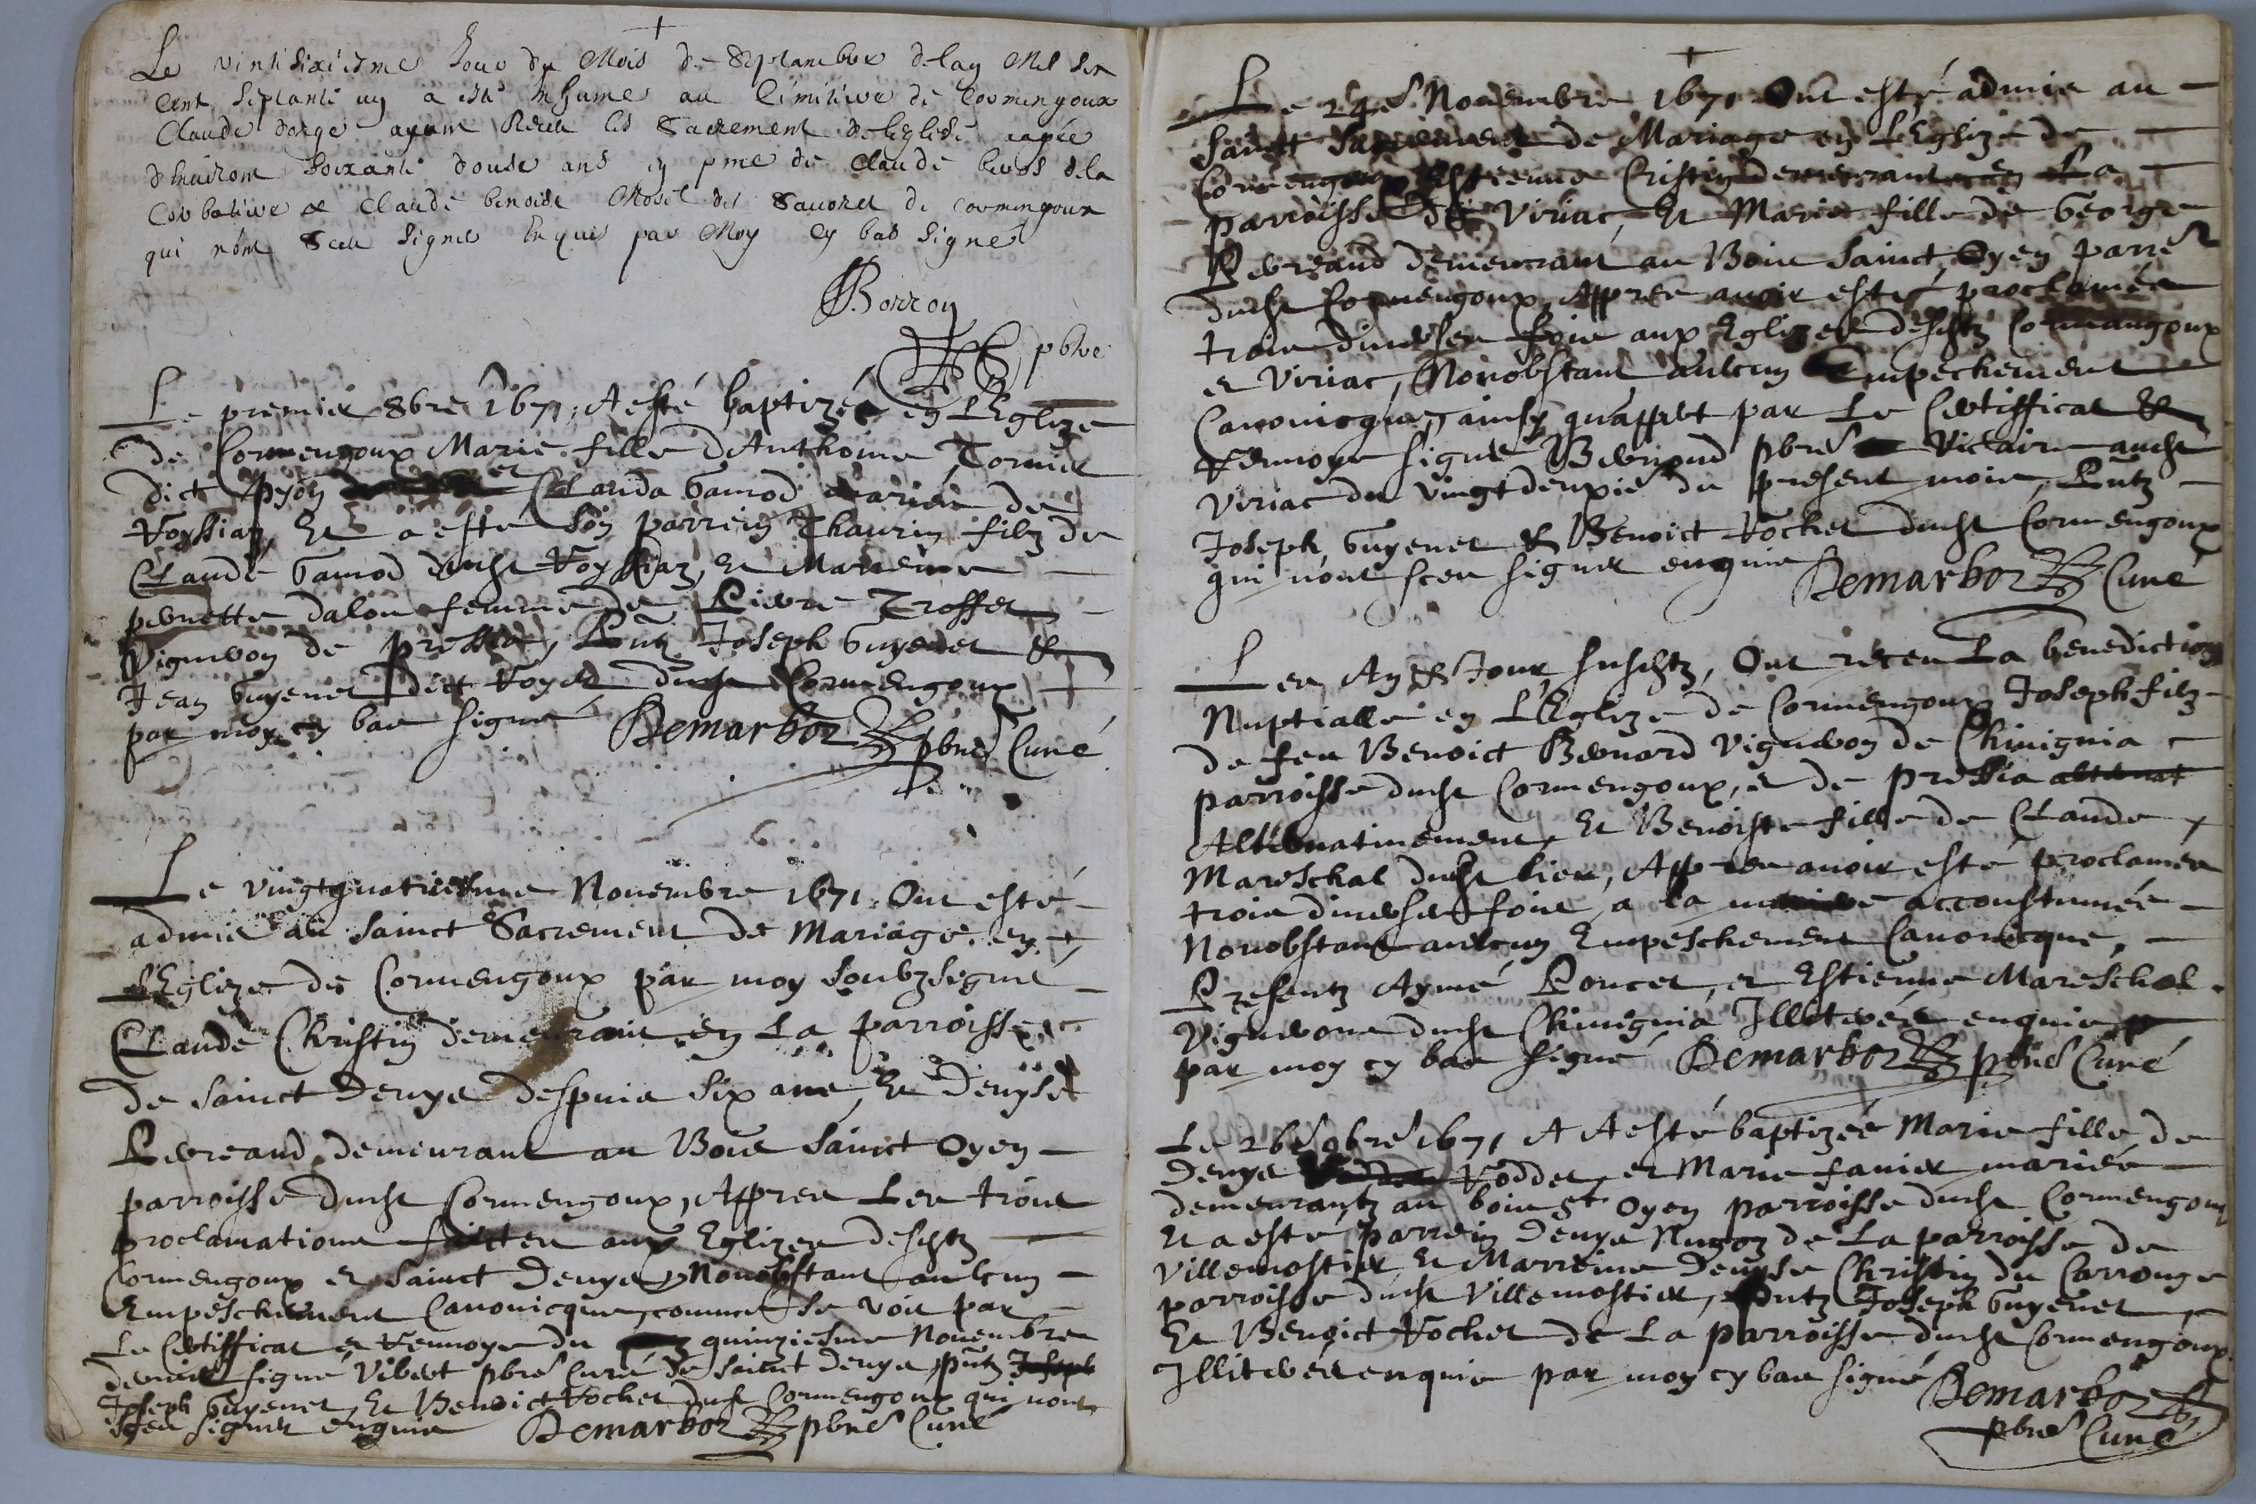 Le vintsixiesme Jour du Mois de Septambre de lan Mil six
cent septante un a esté Inhumé au Cimitiere de Cormengoux
Claude dorge ayant Receu les Sacrement de leglise aagée
denuiront Soixante douse ans en pnce de Claude
Corbatiere & Claude benoist de Cormengoux
qui nont sceu signer Enquis par Moy cy bas signé
Borron
pbre
Le premier 8bre 1671, A esté baptizée en L'Eglize
de Cormengoux Marie fille d'Anthoine Tornier
dict pyon et Clauda Gamod mariés de
Voyssia, Et a esté son parrein Thaurin filz de
Claude Gamod dudt Voyssiaz, Et Marreine
pernette dalou femme de Pierre Troffet
Vigneron de pressia, Pntz Joseph Guyenet &
Jean Guyenet dict Royer dudt Cormengoux
par moy cy bas signé Demarboz pbre Curé
Le vingtquatriesme Nouembre 1671. Ont esté
admis au sainct Sacrement de Mariage en
L'Eglize de Cormengoux par moy soubzsigné
Claude Christin demeurant en La parroisse
de sainct Denys despuis six ans, Et Denyse
Peureaud demeurant au Bois sainct Oyen
parroisse dudt Cormengoux, Appres Les trois
proclamations faictes aux Eglizes desdtz
Cormengoux et sainct Denys, Nonobstant aulcun
Empeschement Canonicque, comme se voit par
Le Certifficat et Renuoye du quinziesme Nouembre
dernier signé Vibert pbre Curé de sainct Denys, pntz
Joseph Guyenet Et Benoict Rochet dudt Cormengoux qui n'ont
sceu signer enquis Demarboz pbre Curé
Le 24e Nouembre 1671 Ont esté admis au
sainct Sacrement de Mariage en L'Eglize de
Cormengoux Estienne Cristin demeurant en La
parroisse de Viriac, Et Marie fille de George
Peureaud demeurant au Bois sainct Oyen parre
dudt Cormengoux, Appres auoir estés proclamés
trois diuerses fois aux Eglizes desdtz Cormangoux
et Viriac, Nonobstant aulcun Empechement
Canonicque, ainsy qu'appert par Le Certifficat &
Renuoye signé pbre Viclaire audt
Viriac du vingtdeuxie du present mois, Pntz
Joseph Guyenet & Benoict Rochet dudt Cormengoux
qui n'ont sceu signer enquis Demarboz Curé
Les An & Jour susdtz, Ont receu La benediction
Nuptialle en L'Eglize de Cormengoux Joseph filz
de feu Benoict Bernard Vigneron de Chiuignia
parroisse dudt Cormengoux, et de pressia
Alternatiuement, Et Benoiste fille de Claude
Mareschal dudt lieu, Appres auoir esté proclamés
trois diuerses fois a la maniere accoustumée
Nonobstant aulcun Empeschement Canonicque,
Presentz Aymé Poncet, et Estienne Mareschal
Vignerons dudt Chiuignia Illiterés enquis
par moy cy bas signé Demarboz pbre Curé
Le 26e 9bre 1671 A A esté baptizée Marie fille de
Denys Roddet et Marie fauier mariés
demeurantz au bois st Oyen parroisse dudt Cormengoux
Et a esté parrein Denys Nugoz de La parroisse de
Villemostier Et Marreine Denyse Christin du Carrouge
parroisse dudt Villemostier, pntz Joseph Guyenet
Et Benoict Rochet de La parroisse dudt Cormengoux
Illiterés enquis par moy cy bas signé
Demarboz
pbre Curé